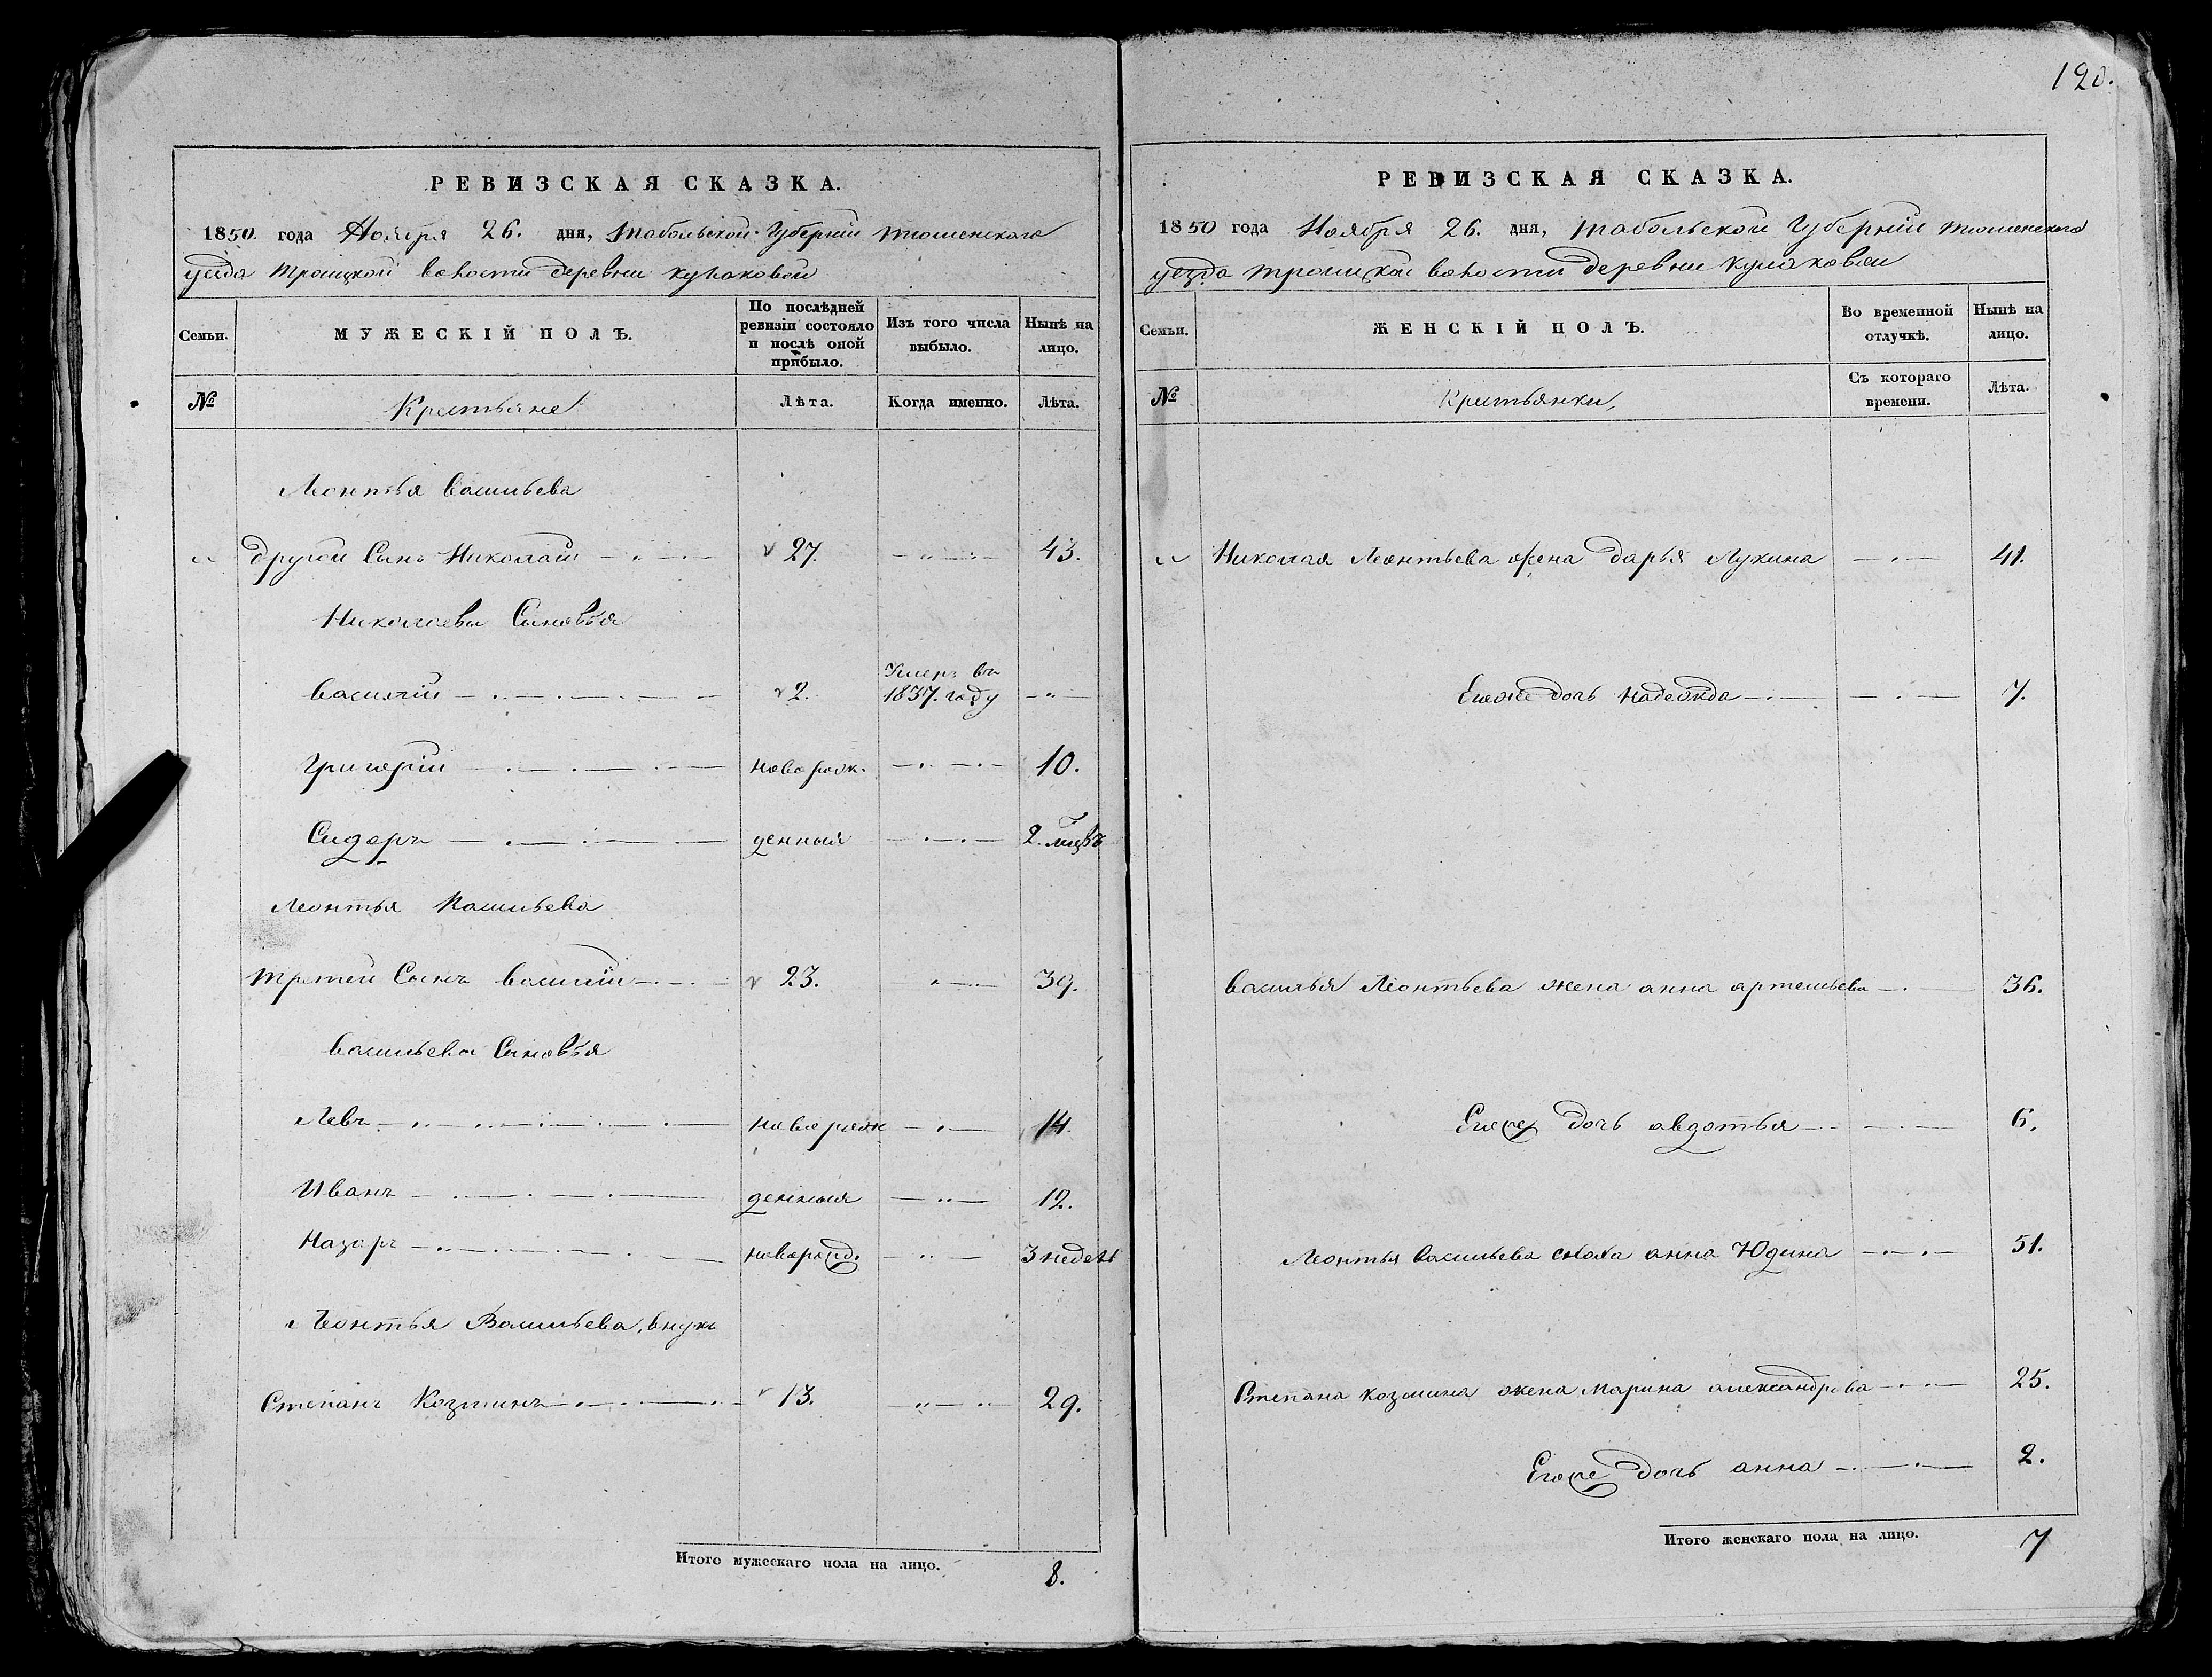 РЕВИЗСКАЯ СКАЗКА.
1850. года Ноября 26. дня, Тобольской Губерніи Тюменскаго
уезда Троицкой волости деревни Кулаковой
Семьи.
МУЖЕСКІЙ ПОЛЪ.
По послѣдней ревизіи состояло и послѣ оной прибыло.
Изъ того числа выбыло.
Нынѣ на лицо.
№
Крестьяне
Лѣта.
Когда именно.
Лѣта.
Леонтья Васильева
другой Сынъ Николай 27. 43.
Николаевы Сыновья
Василій 2. Умеръ въ 1837. году
Григорій новорож. 10.
Сидоръ денныя 2. мцвъ
Леонтья Васильева
третей Сынъ Василій 23. 39.
Васильева Сыновья
Левъ новорож 14.
Иванъ денныя 12.
Назаръ наворожд. 3 недель
Леонтья Васильева, внукъ
Степанъ Козминъ 13. 29.
Итого мужескаго пола на лицо. 8.
120.
РЕВИЗСКАЯ СКАЗКА.
1850 года Ноября 26. дня, Тобольской Губерніи Тюменскаго
уезда Троицкой волости деревни Кулаковой
Семьи.
ЖЕНСКІЙ ПОЛЪ.
Во временной отлучкѣ.
Нынѣ на лицо.
№
Крестьянки,
Съ котораго времени.
Лѣта.
Николая Леонтьева жена Дарья Лукина 41.
Егоже дочь Надежда 7.
Василья Леонтьева жена анна артемьева 36.
Егоже дочь авдотья 6.
Леонтья Васильева сноха анна Юдина 51.
Степана Козмина жена Марина александрова 25.
Егоже дочь анна 2.
Итого женскаго пола на лицо. 7